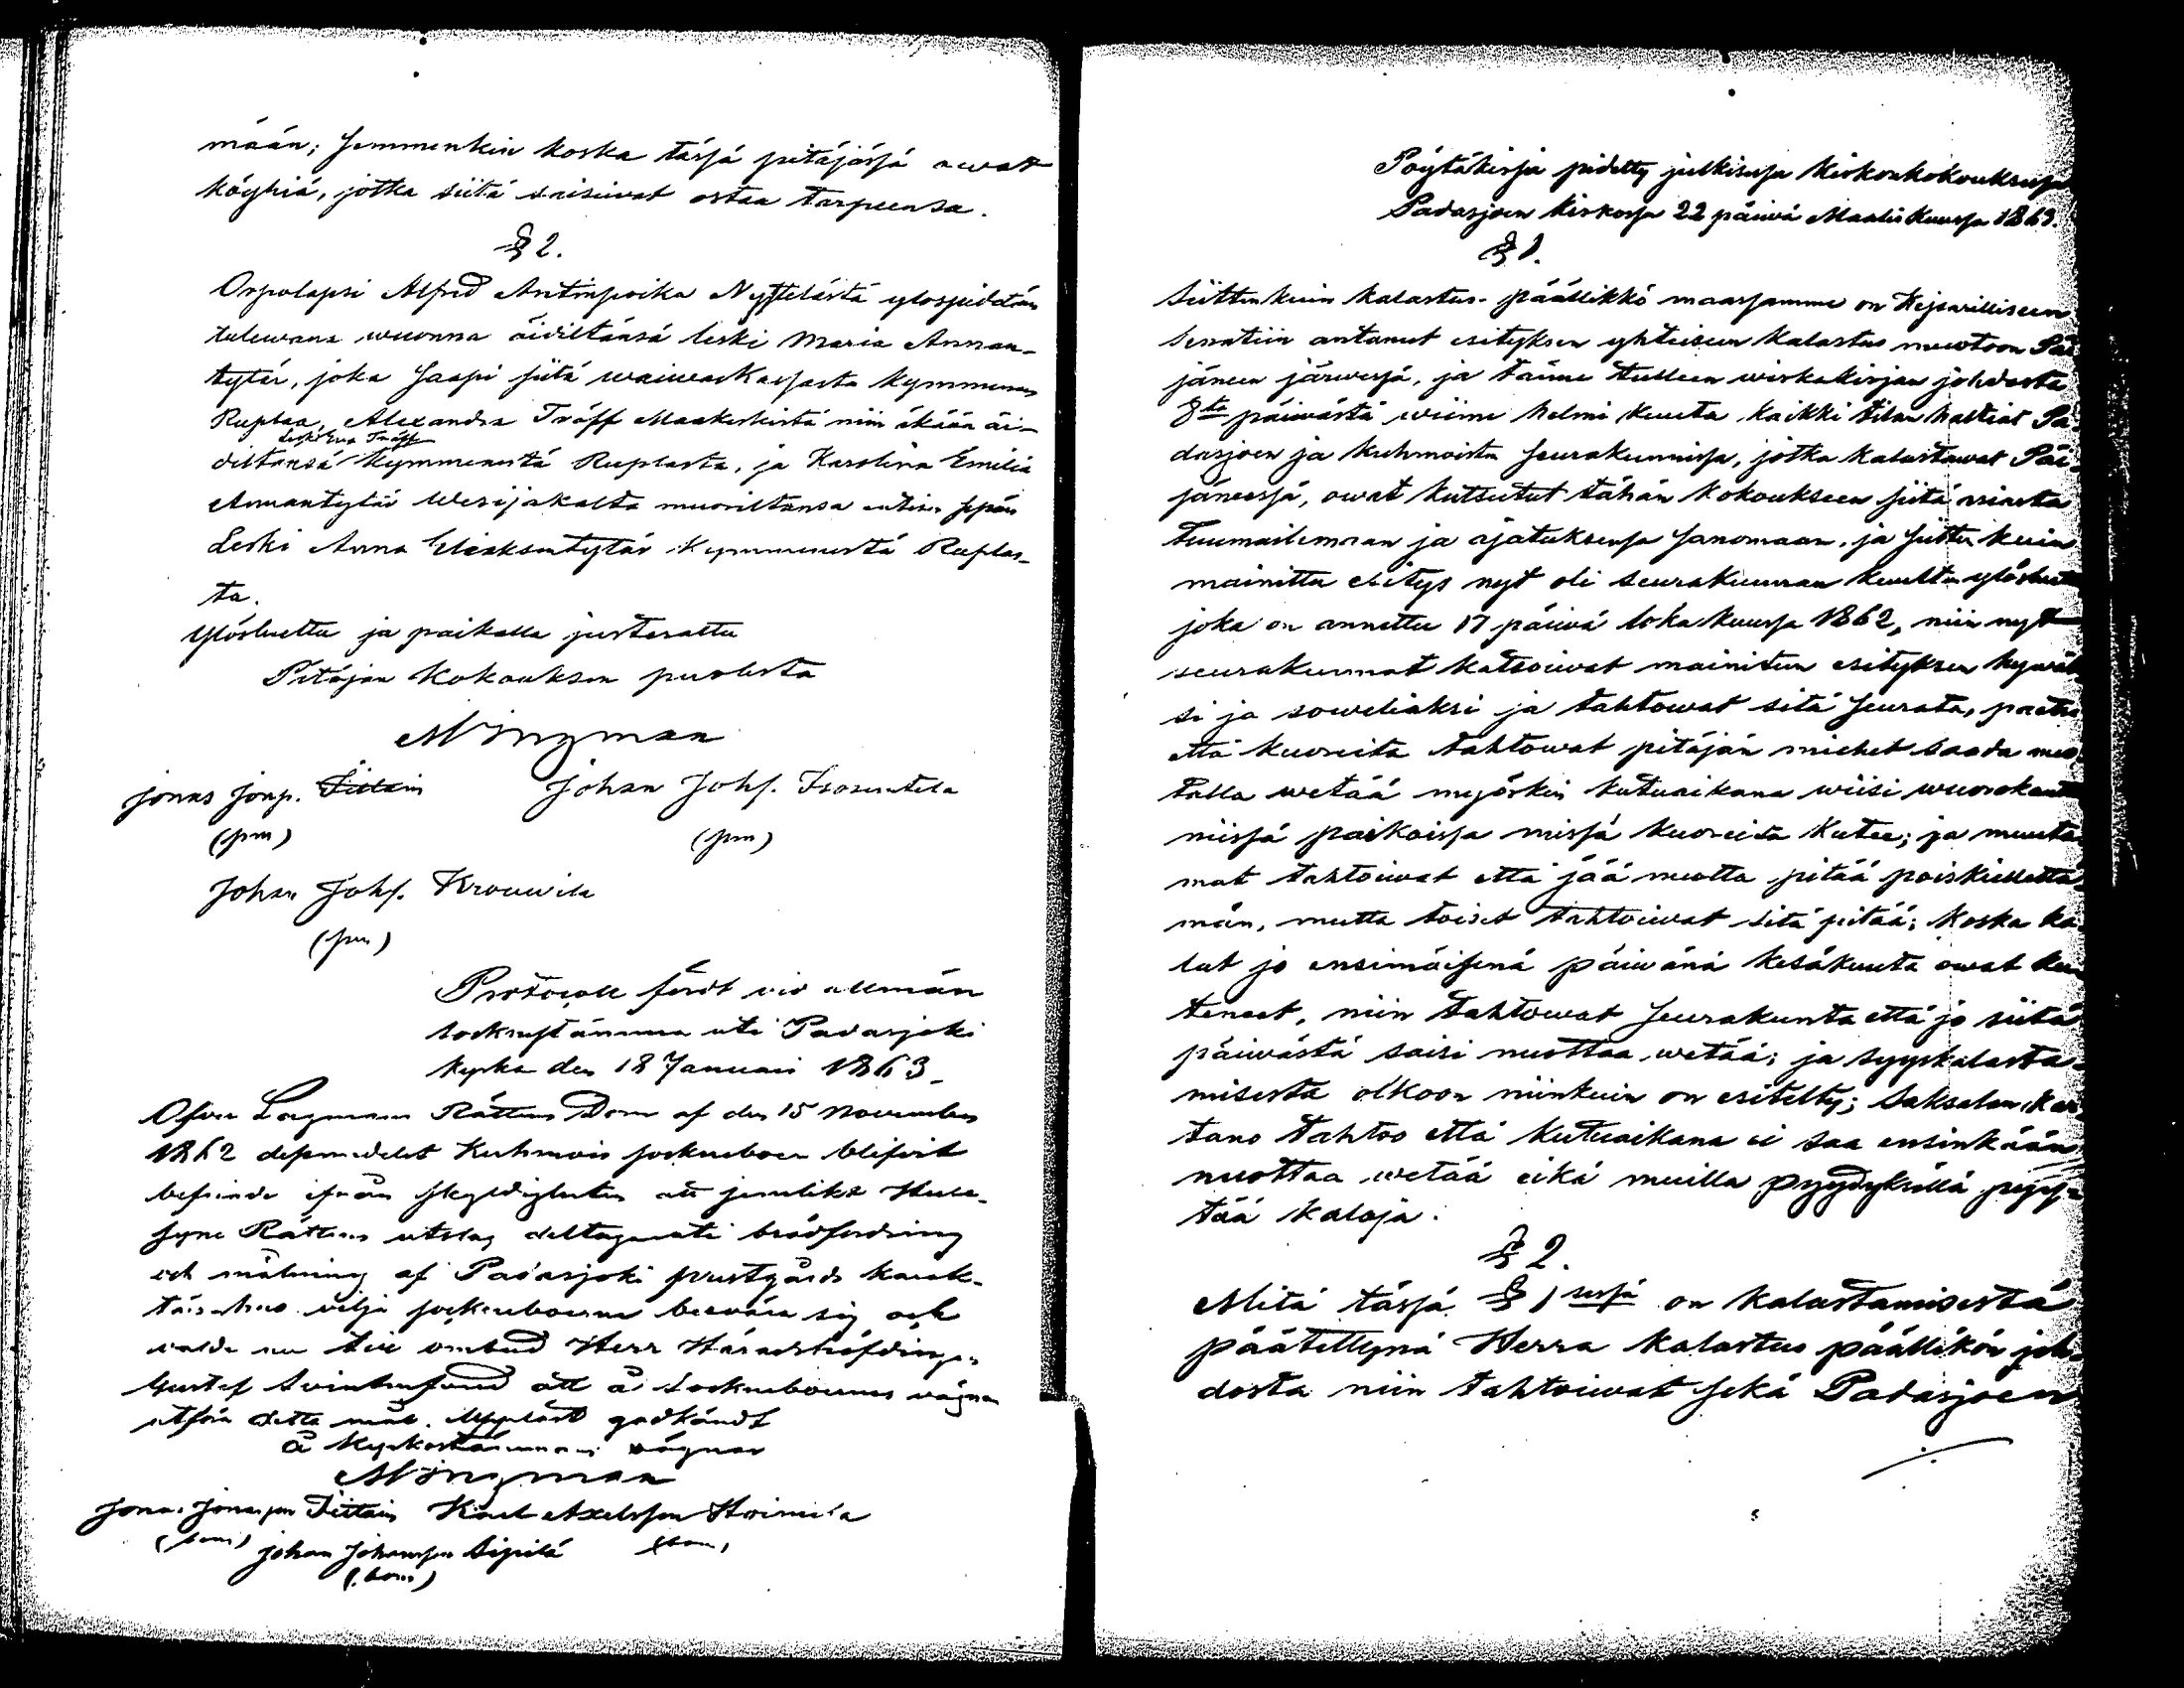 mään; semmenkin koska tässä pitäjässä owat
köyhiä, jotka siitä saisiwat ostaa tarpeensa.
§ 2.
Orpolapsi Alfred Antinpoika Nyystelästä ylöspidetän
tulewana wuonna äidiltänsä leski Maria Annan-
tytär, joka saapi siitä waiwaskassasta kymmenen
Ruplaa, Alexandra Träff Maakeskestä niin ikään äi-
Leski Eva Träff
diltänsä kymmenestä Ruplasta, ja Karolina Emilia
Annantytär Wesijakolta muoriltansa entisen
Leski Anna Eliaksentytär kymmenestä Ruplas-
ta.
Ylösluettu ja paikalla justerattu
Pitäjän Kokouksen puolesta
A Wingman
Jonas Jonp. Tittain Johan Johs. Isosuntela
(pm) (pm)
Johan Johs. Krouwila
(pm)
Protocoll fördt vid allmän
sockenstämma uti Padasjoki
kyrka den 18 Januari 1863.
Öfver Lagmans Rättens Dom af den 15 November
1862 Kuhmois sockneboer blifvit
befriade ifrån skyldigheten att jemlikt Huse-
syns Rättens utslag deltaga uti brädfordring
och målning af Padasjoki prestgårds karak-
tärshus vilja socknboerne besvära sig och
valde nu till ombud Herr Häradshöfdingen
Gustef Svinhufvud att å Sockneboernes vägnar
utföra detta mål. Uppläst godkändt
å Kyrkostämmans vägnar
A Wingman
Jonas Jonasson Tittain Karl Axelsson Hoimela
(bom) Johan Johansson Sipilä (bom)
(bom)
Pöytäkirja pidetty julkisesa kirkonkokouksesa
Padasjoen kirkossa 22 päiwä Maaliskuussa 1863.
§ 1.
Siittenkuin kalastus-päällikkö maassamme on Keisarilliseen
Senatiin antanut esityksen yhteiseen kalastus muotoon Päi
jäneen järwessä, ja tänne tulleen wirkakirjan johdosta
8ta päiwästä wiime helmi kuuta kaikki tilan haltiat Pa-
dasjoen ja Kuhmoisten seurakunnissa, jotka kalastawat Päi-
jäneessä, owat kutsutut tähän kokoukseen siitä asiasta
tuumailemaan ja ajatuksensa sanomaan, ja siitte kuin
mainittu esitys nyt oli seurakunnan kuulten ylösluettu
joka on annettu 17 päiwä lokakuussa 1862, niin nyt
seurakunnat katsoiwat mainitun esityksen hywäk
si ja soweliaksi ja tahtowat sitä seurata, paitsi
että kuoreita tahtowat pitäjän miehet saada nuo-
talla wetää myöskin kutuaikana wiisi wuorokautta
niissä paikoissa missä kuoreita kutee; ja muuta-
mat tahtoiwat että jää nuotta pitää poiskiellettä
män, mutta toiset tahtoiwat sitä pitää; koska ka-
lat jo ensimäisenä päiwänä kesäkuuta owat ku
teneet, niin tahtowat seurakunta että jo siitä
päiwästä saisi nuottaa wetää; ja syyskalasta-
misesta olkoon niinkuin on esitelty; Saksalan kar-
tano tahtoo että kutuaikana ei saa ensinkään
nuottaa wetää eikä muilla pyydyksillä pyys-
tää kaloja.
§ 2.
Mitä tässä § 1sessä on kalastamisesta
päätettynä Herra kalastus päällikön joh-
dosta niin tahtoiwat sekä Padasjoen